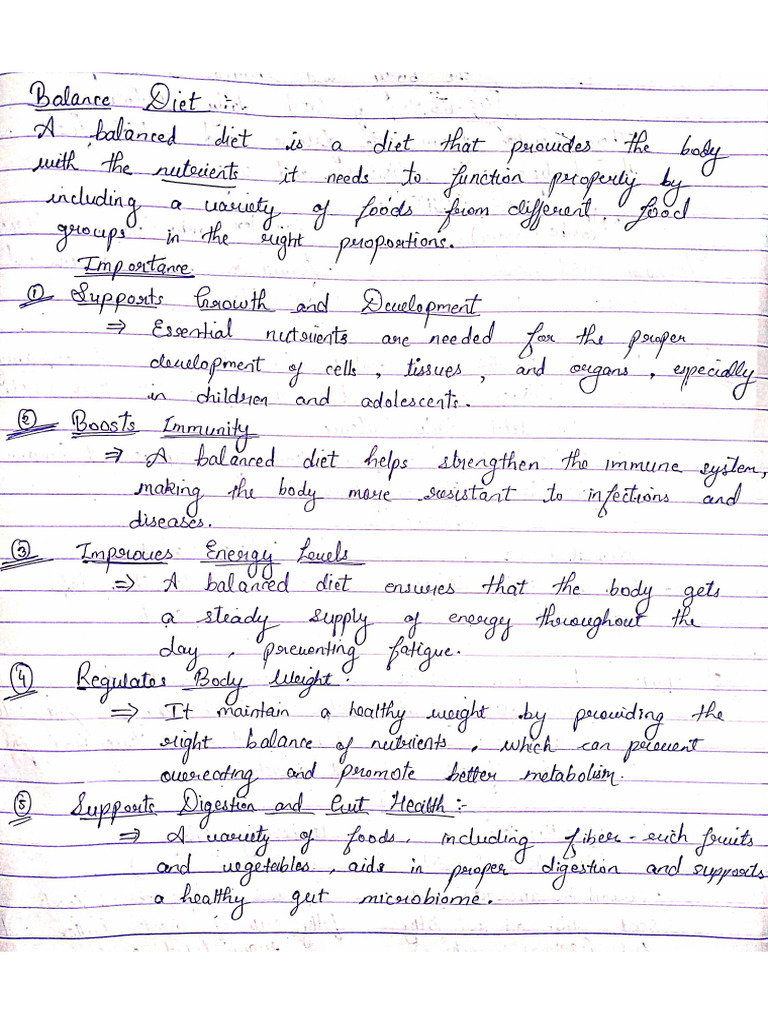 Balance Diet :-
A balanced diet is a diet that provides the body
with the nutrients it needs to function properly by
including a variety of foods from different food
groups in the right proportions.
Importance
① Supports Growth and Development
⇒ Essential nutrients are needed for the proper
development of cells, tissues, and organs, especially
in children and adolescents.
② Boosts Immunity
⇒ A balanced diet helps strengthen the immune system,
making the body more resistant to infections and
diseases.
③ Improves Energy Levels
⇒ A balanced diet ensures that the body gets
a steady supply of energy throughout the
day, preventing fatigue.
④ Regulates Body Weight :
⇒ It maintain a healthy weight by providing the
right balance of nutrients, which can prevent
overeating and promote better metabolism.
⑤ Supports Digestion and Gut Health :-
⇒ A variety of foods, including fiber-rich fruits
and vegetables, aids in proper digestion and supports
a healthy gut microbiome.